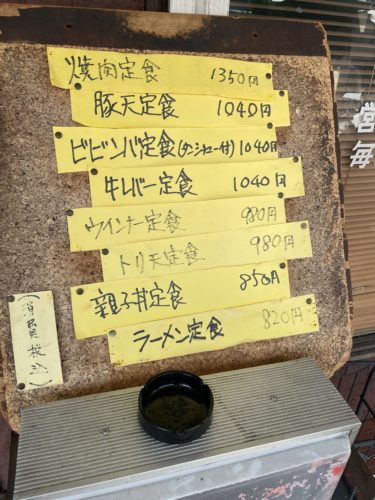 焼肉定食 1350円
豚天定食 1040円
ビビンバ定食(タンシチュー付) 1040円
牛レバー定食 1040円
ウインナー定食 980円
トリ天定食 980円
親子丼定食 850円
ラーメン定食 820円
(消費税込)
営
毎